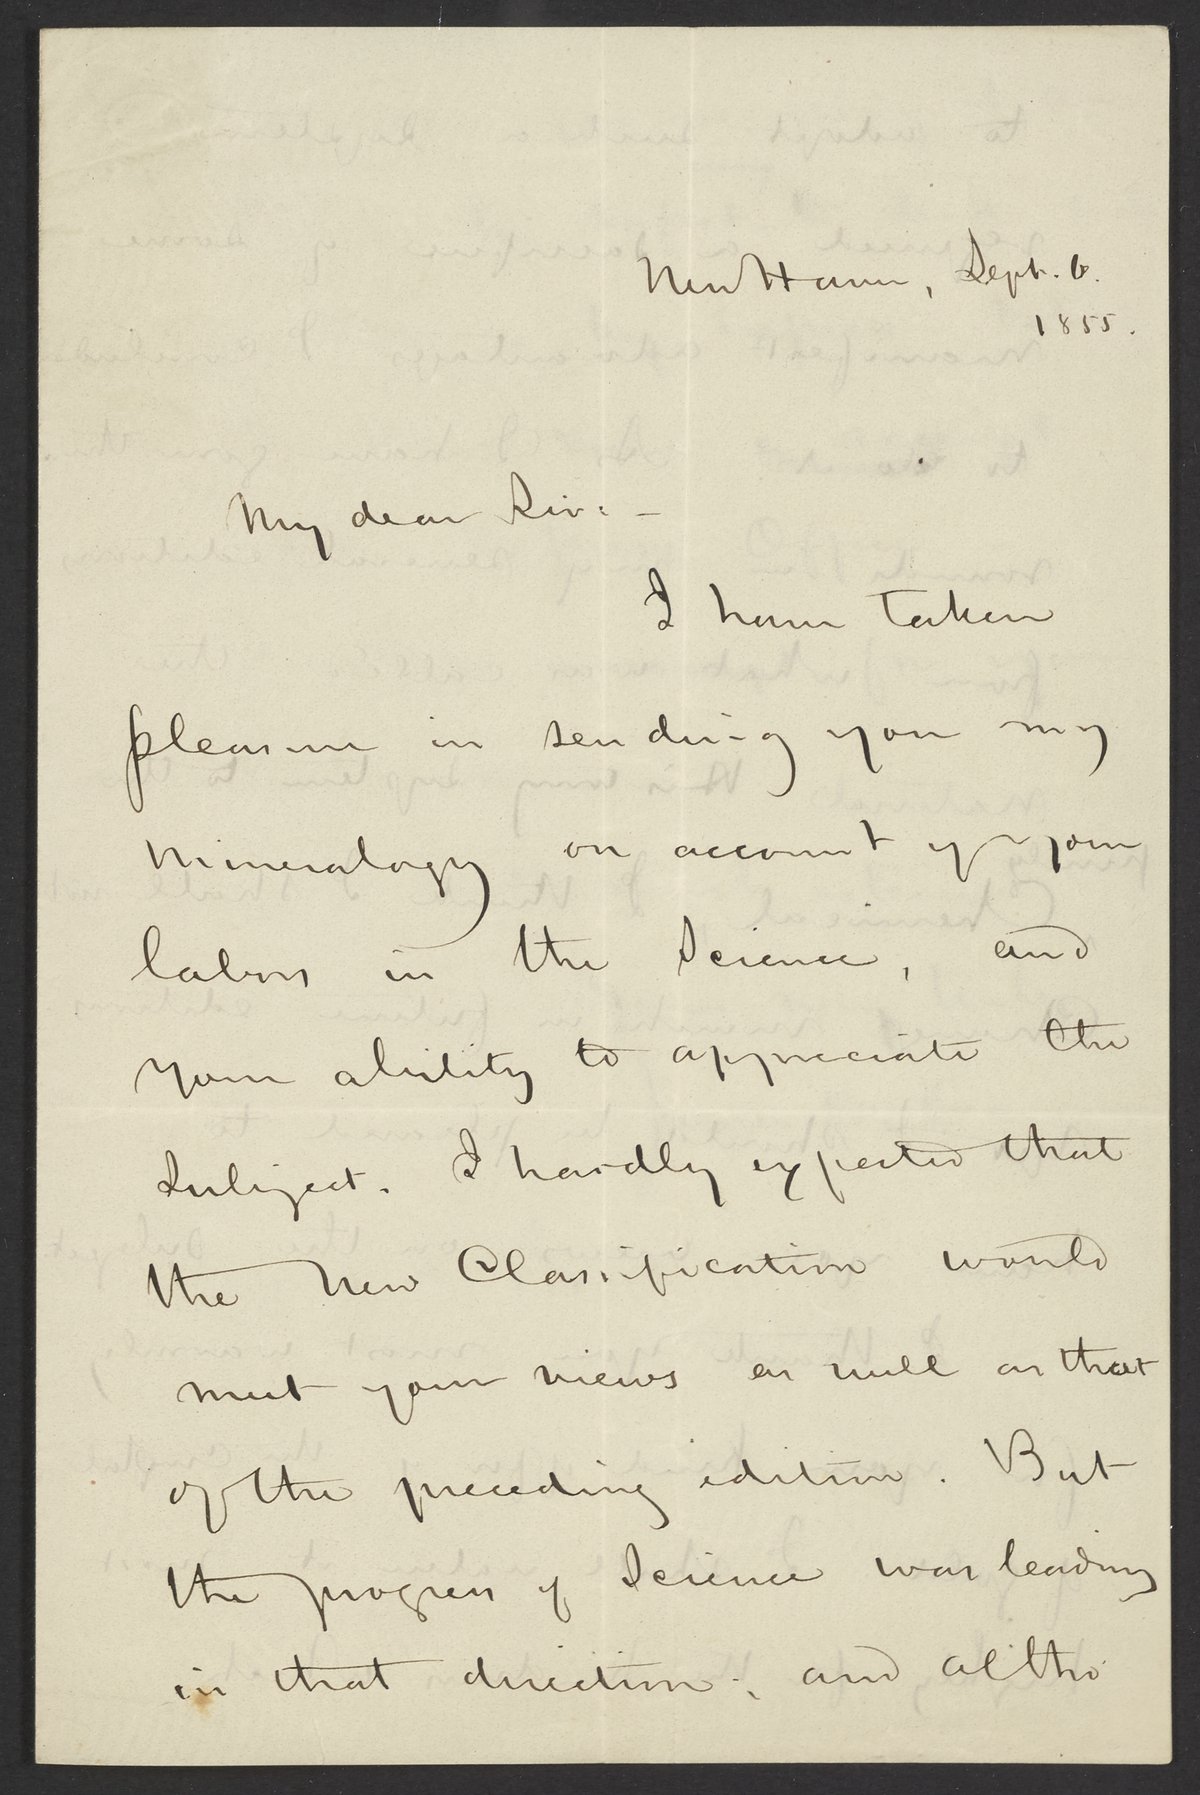 New Haven, Sept. 6.
1855.
My dear Sir: -
I have taken
pleasure in sending you my
Mineralogy on account of your
labors in the Science, and
your ability to appreciate the
Subject. I hardly expected that
the New Classification would
meet your views as well as that
of the preceding edition. But
the progress of Science was leading
in that direction; and altho'